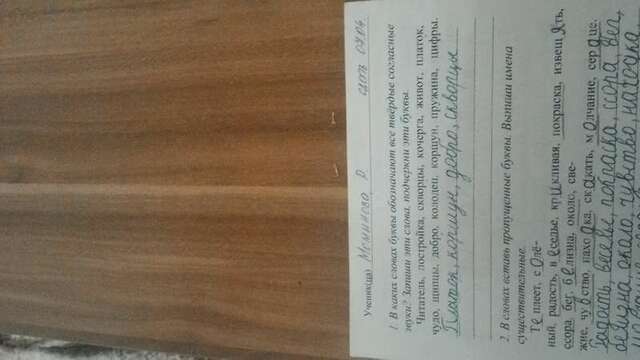 Ученик(ца) Меминова Р. сдать 07.04.
1. В каких словах буквы обозначают все твёрдые согласные
звуки? Запиши эти слова, подчеркни эти буквы.
Читатель, постройка, скворцы, кочерга, живот, платок,
чудо, щипцы, добро, колодец, коршун, пружина, цифры.
Платок, коршун, добро, скворцы
2. В словах вставь пропущенные буквы. Выпиши имена
существительные.
Те плеет, с олё-
ный, радость, в еселье, крикливая, покраска, извещ ять,
ссора, бег, белизна, около, све-
жие, чувство, находка, скакать, молчание, сердце.
радость, веселье, покраска, ссора, бег,
белизна, около, чувство, находка